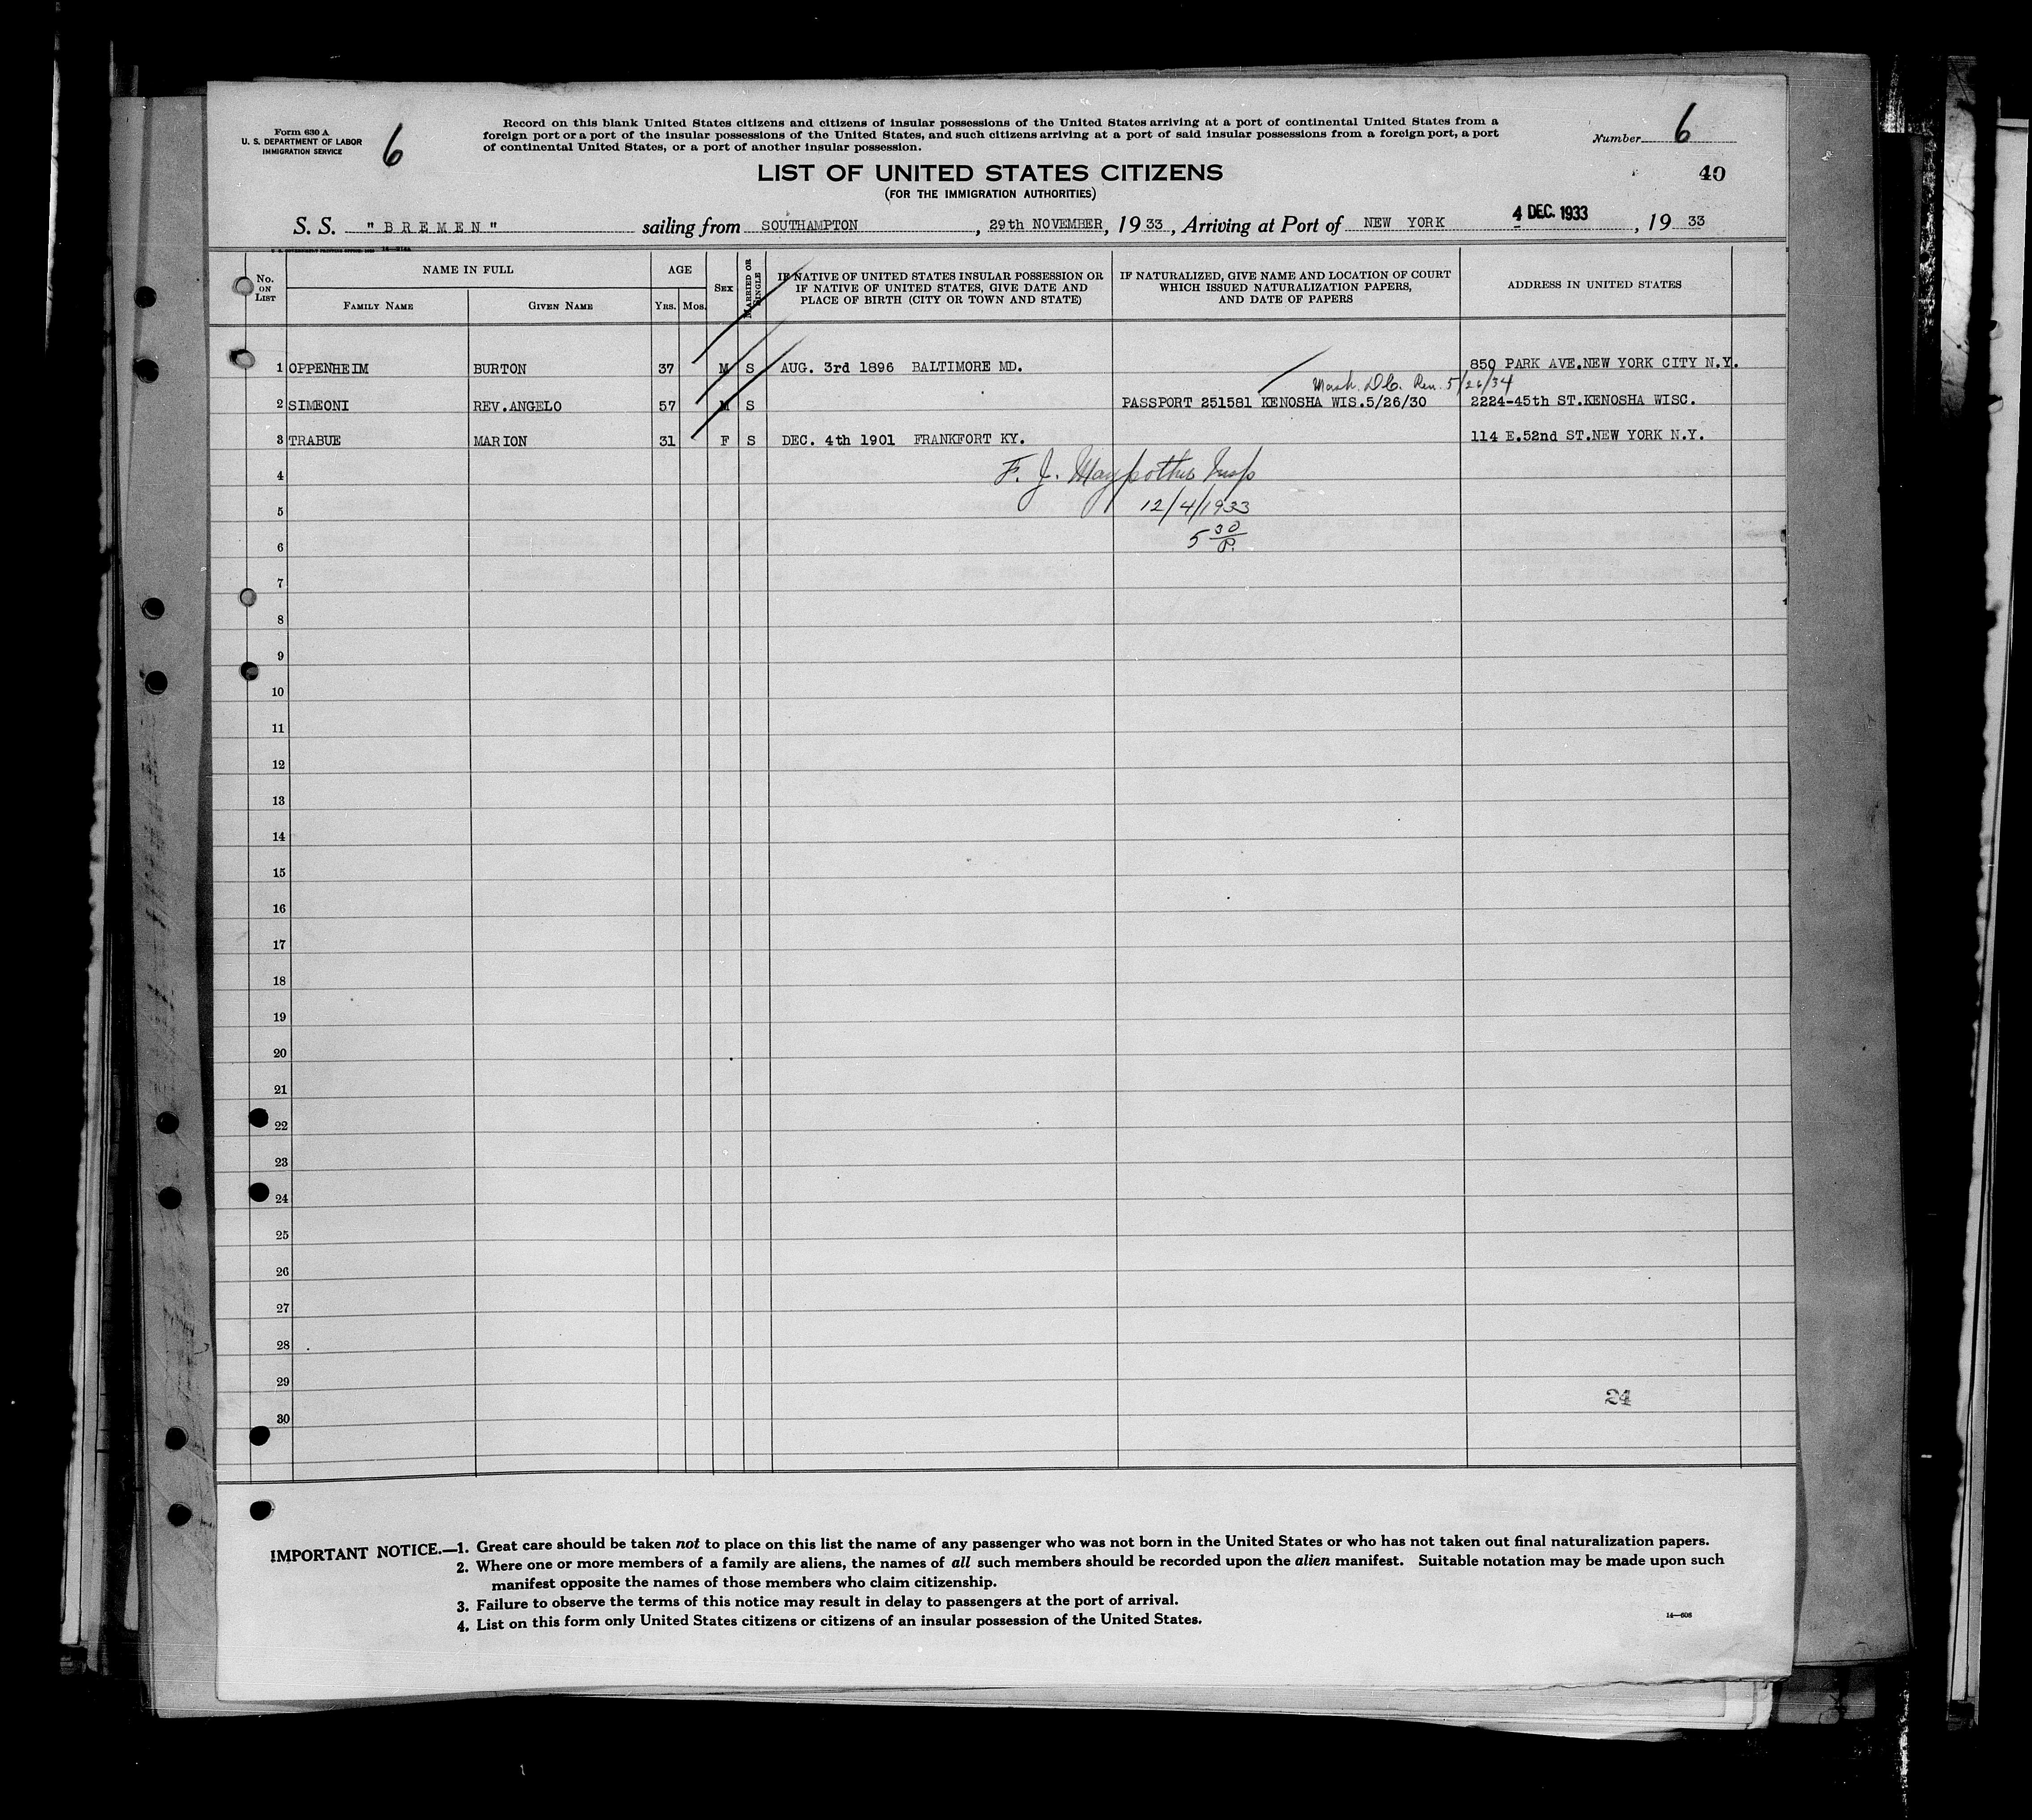 Form 630 A
U. S. DEPARTMENT OF LABOR
IMMIGRATION SERVICE
6
Record on this blank United States citizens and citizens of insular possessions of the United States arriving at a port of continental United States from a
foreign port or a port of the insular possessions of the United States, and such citizens arriving at a port of said insular possessions from a foreign port, a port
of continental United States, or a port of another insular possession.
Number 6
40
LIST OF UNITED STATES CITIZENS
(FOR THE IMMIGRATION AUTHORITIES)
S. S. "BREMEN" sailing from SOUTHAMPTON, 29th NOVEMBER, 1933, Arriving at Port of NEW YORK 4 DEC. 1933, 1933
No. ON LIST
NAME IN FULL
FAMILY NAME GIVEN NAME
AGE
YRS. MOS.
SEX
MARRIED OR SINGLE
IF NATIVE OF UNITED STATES INSULAR POSSESSION OR
IF NATIVE OF UNITED STATES, GIVE DATE AND
PLACE OF BIRTH (CITY OR TOWN AND STATE)
IF NATURALIZED, GIVE NAME AND LOCATION OF COURT
WHICH ISSUED NATURALIZATION PAPERS,
AND DATE OF PAPERS
ADDRESS IN UNITED STATES
1 OPPENHEIM BURTON 37 M S AUG. 3rd 1896 BALTIMORE MD. 850 PARK AVE.NEW YORK CITY N.Y.
Wash. D.C. Ren. 5/26/34
2 SIMEONI REV.ANGELO 57 M S PASSPORT 251581 KENOSHA WIS.5/26/30 2224-45th ST.KENOSHA WISC.
3 TRABUE MARION 31 F S DEC. 4th 1901 FRANKFORT KY. 114 E.52nd ST.NEW YORK N.Y.
F. J. Insp
4
12/4/1933
5
5 30 P.
6
7
8
9
10
11
12
13
14
15
16
17
18
19
20
21
22
23
24
25
26
27
28
29
24
30
IMPORTANT NOTICE.—1. Great care should be taken not to place on this list the name of any passenger who was not born in the United States or who has not taken out final naturalization papers.
2. Where one or more members of a family are aliens, the names of all such members should be recorded upon the alien manifest. Suitable notation may be made upon such
manifest opposite the names of those members who claim citizenship.
3. Failure to observe the terms of this notice may result in delay to passengers at the port of arrival.
4. List on this form only United States citizens or citizens of an insular possession of the United States.
14—608